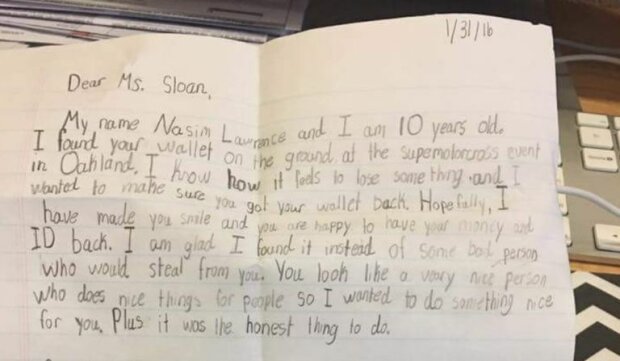 1/31/16
Dear Ms. Sloan,
My name Nasim Lawrence and I am 10 years old.
I found your wallet on the ground at the supemotorcross event
in Oakland. I know how it feels to lose something and I
wanted to make sure you got your wallet back. Hopefully, I
have made you smile and you are happy to have your money and
ID back. I am glad I found it instead of some bad person
who would steal from you. You look like a very nice person
who does nice things for people so I wanted to do something nice
for you. Plus it was the honest thing to do.